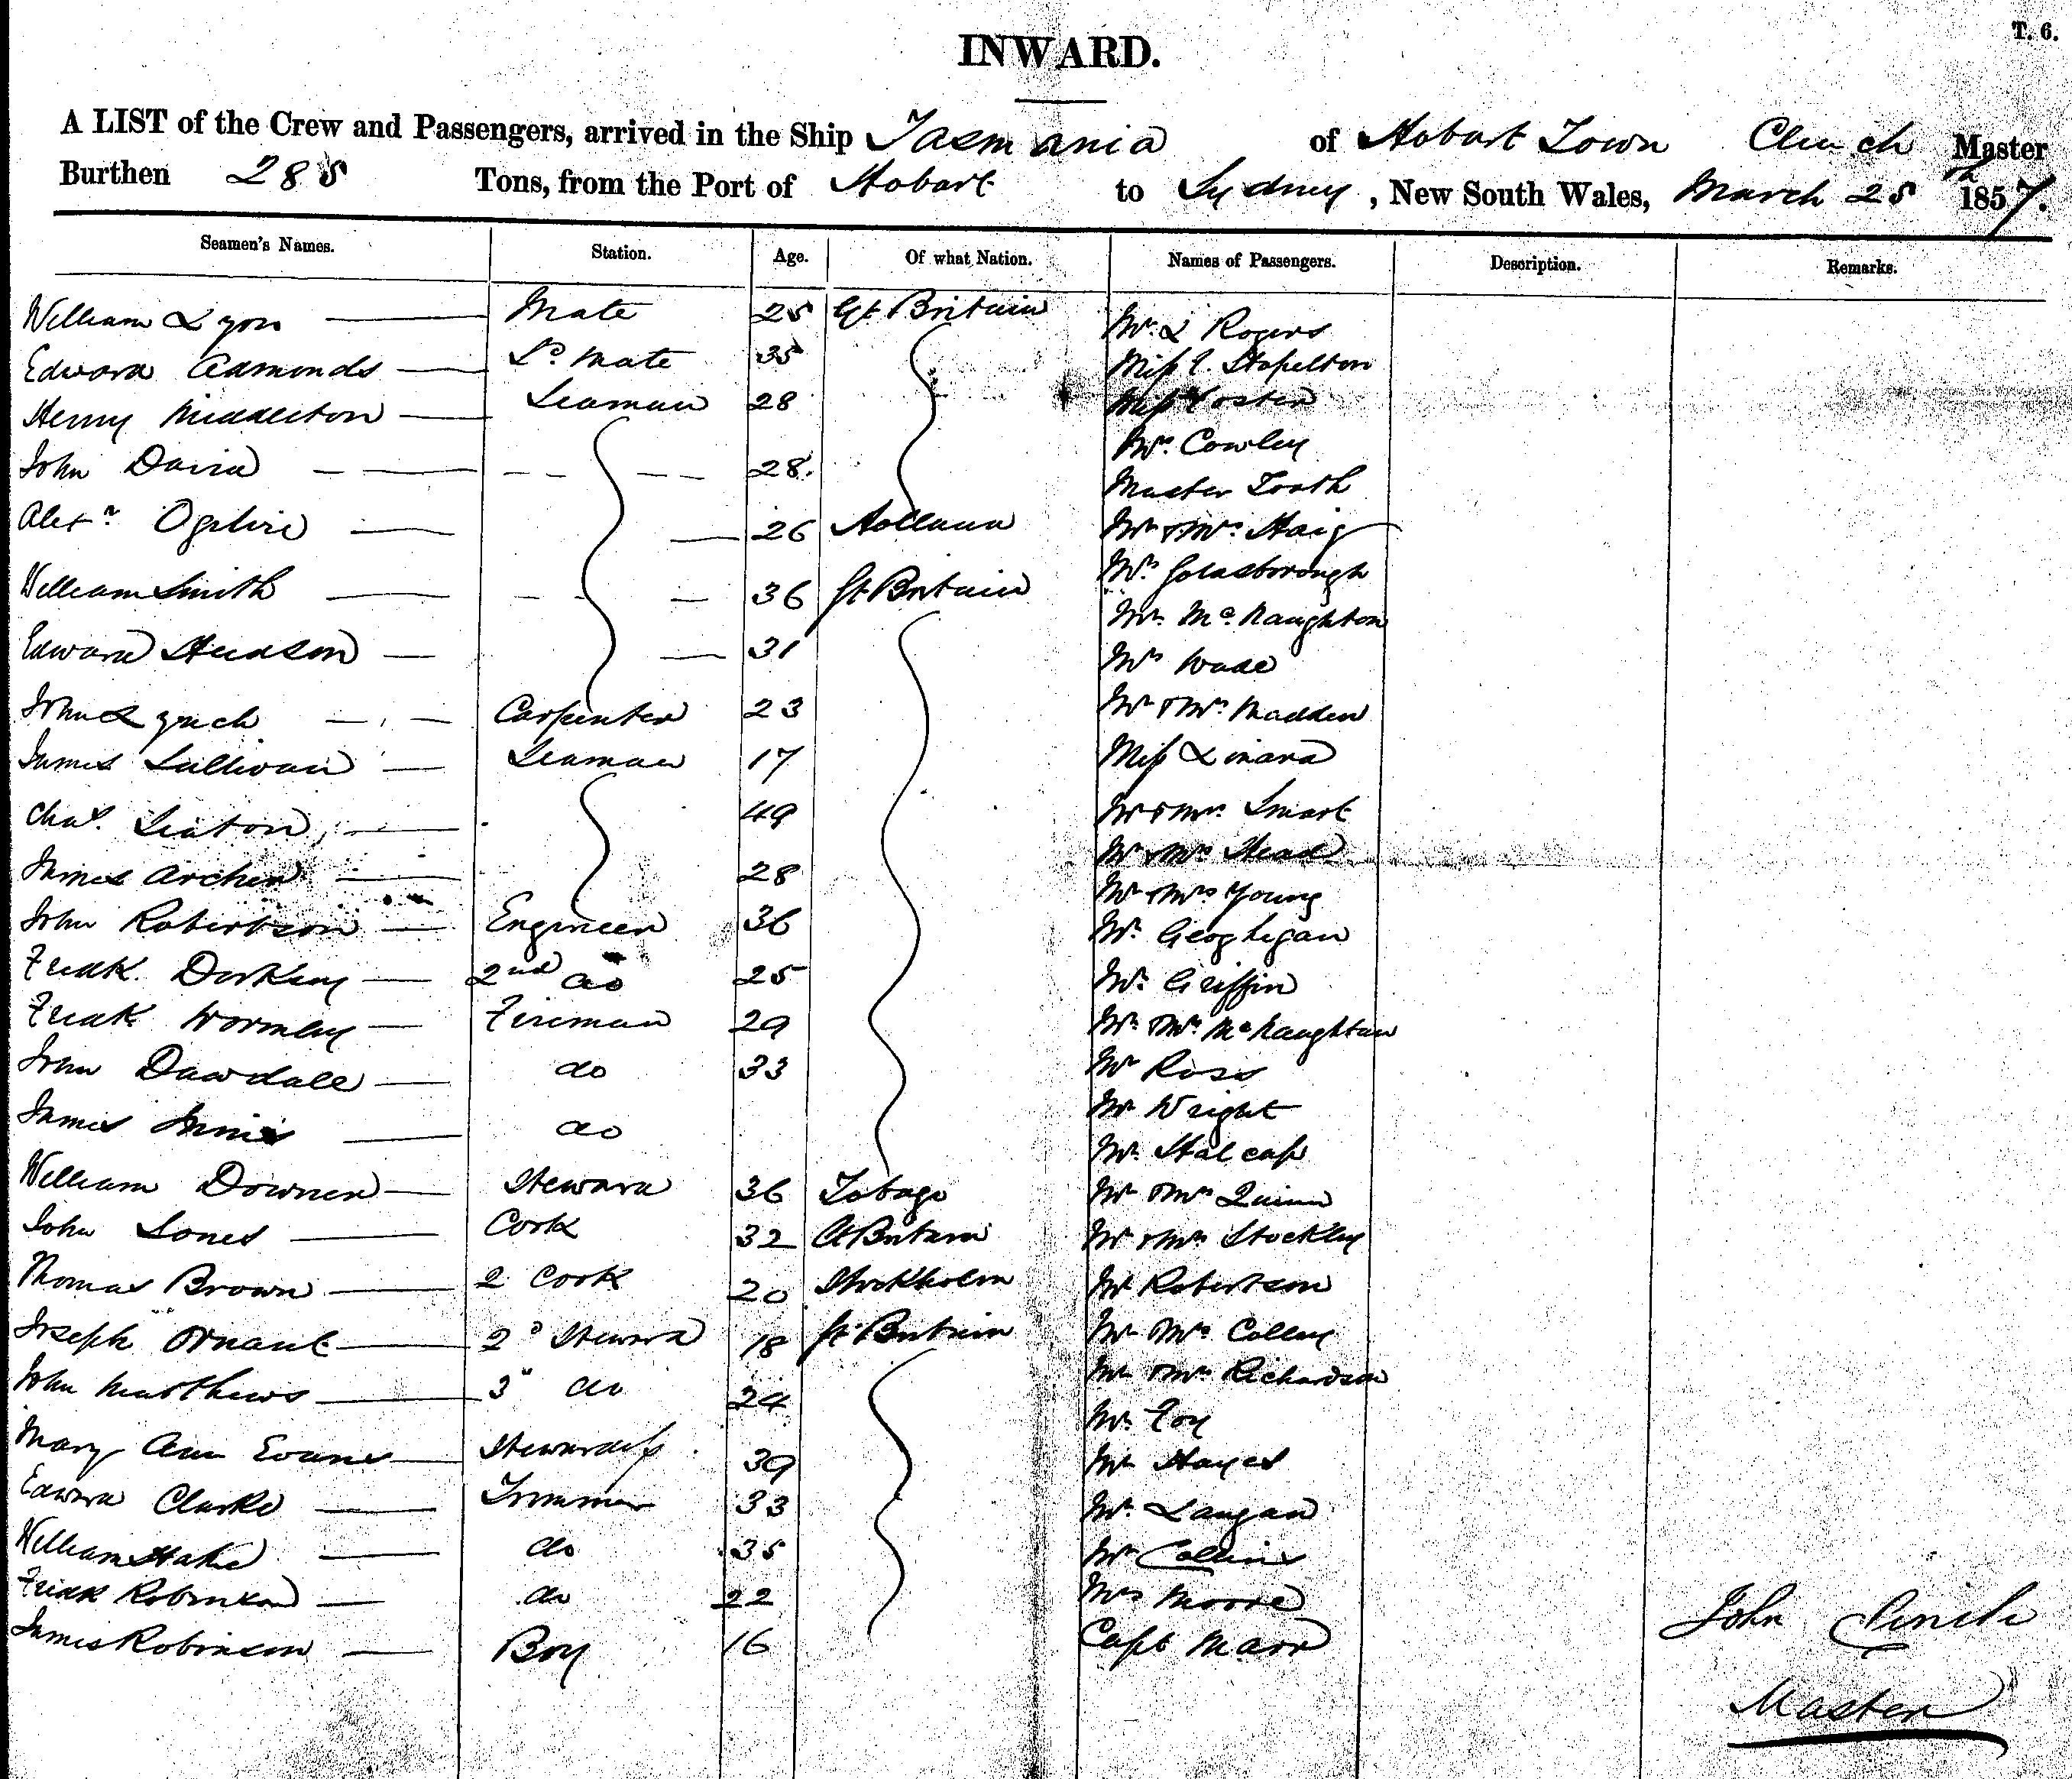 T. 6.
INWARD.
A LIST of the Crew and Passengers, arrived in the Ship Tasmania of Hobart Town Clinch Master
Burthen 285 Tons, from the Port of Hobart to Sydney, New South Wales, March 25th 1857.
Seamen's Names. Station. Age. Of what Nation. Names of Passengers. Description. Remarks.
William Lyon Mate 25 Gt Britain Mr. L Rogers
Edward Edmonds 2d Mate 35 Miss Stapelton
Henry Middleton Seaman 28 Miss Foster
John David 28. Mrs. Cowley
Master Tooth
Alexr Ogilvie 26 Holland Mr & Mrs. Haig
Mr. Goldsborough
William Smith 36 Gt Britain Mr. Mc Naughton
Edward Hudson 31 Mrs Wade
John Lynch Carpenter 23 Mr & Mrs. Madden
James Sullivan Seaman 17 Miss
Chas. Seaton 49 Mr & Mrs. Smart
Mr & Mrs Head
James Archer 28 Mr & Mrs Young
John Robertson Engineer 36 Mr. Geoghegan
Fredk. 2nd do 25 Mr. Griffin
Fredk Wormley Fireman 29 Mr. & Mrs. Mc Naughtan
John Dawdale do 33 Mr Ross
James do Mr Wright
Mr. Stalcap
William Downer Steward 36 Tobago Mr & Mrs Quinn
John Jones Cook 32 Gt Britain Mr & Mrs Stockley
Thomas Brown 2 Cook 20 Stockholm Mr Robertson
Joseph 2d Steward 18 Gt Britain Mr & Mrs Colley
John Matthews 3d do 24 Mr & Mrs Richardson
Mr. Foy
Mary Ann Evans Stewardess 39 Mr Hayes
Edward Clarke Trimmer 33 Mr. Langan
William do 35 Mr Collins
Fredk Robinson do 22 Mrs Moore
James Robinson Boy 16 Capt Marr
John Clinch
Master